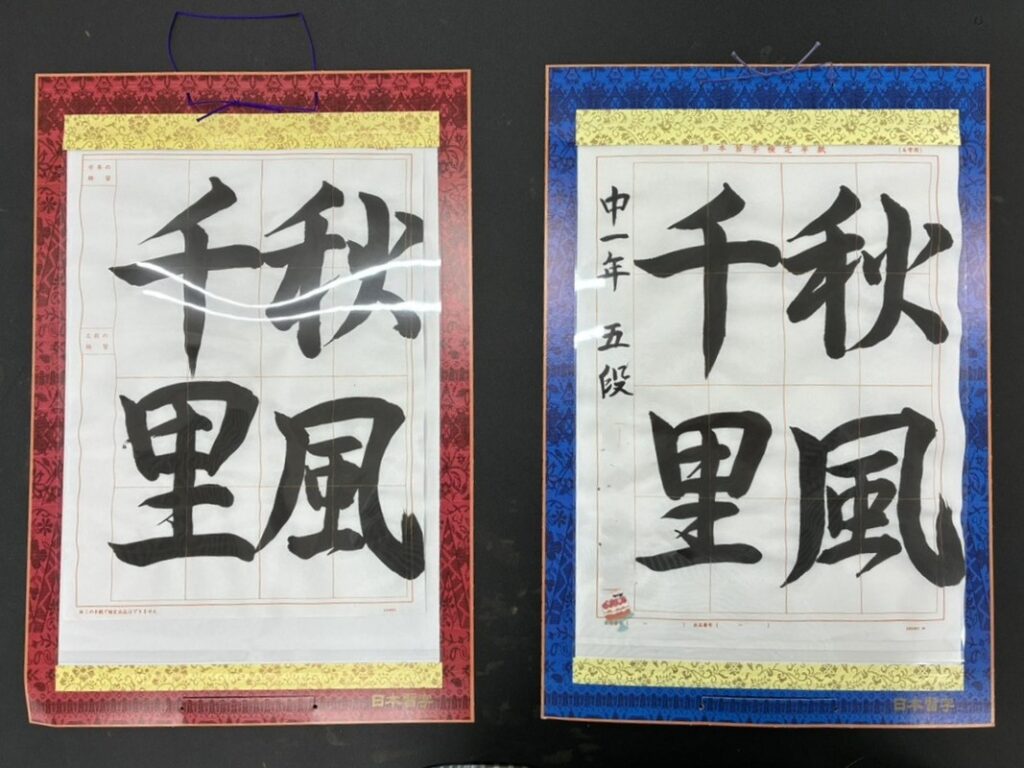 秋風
千里
日本習字
日本習字検定手紙
秋風
千里
中一年 五段
日本習字